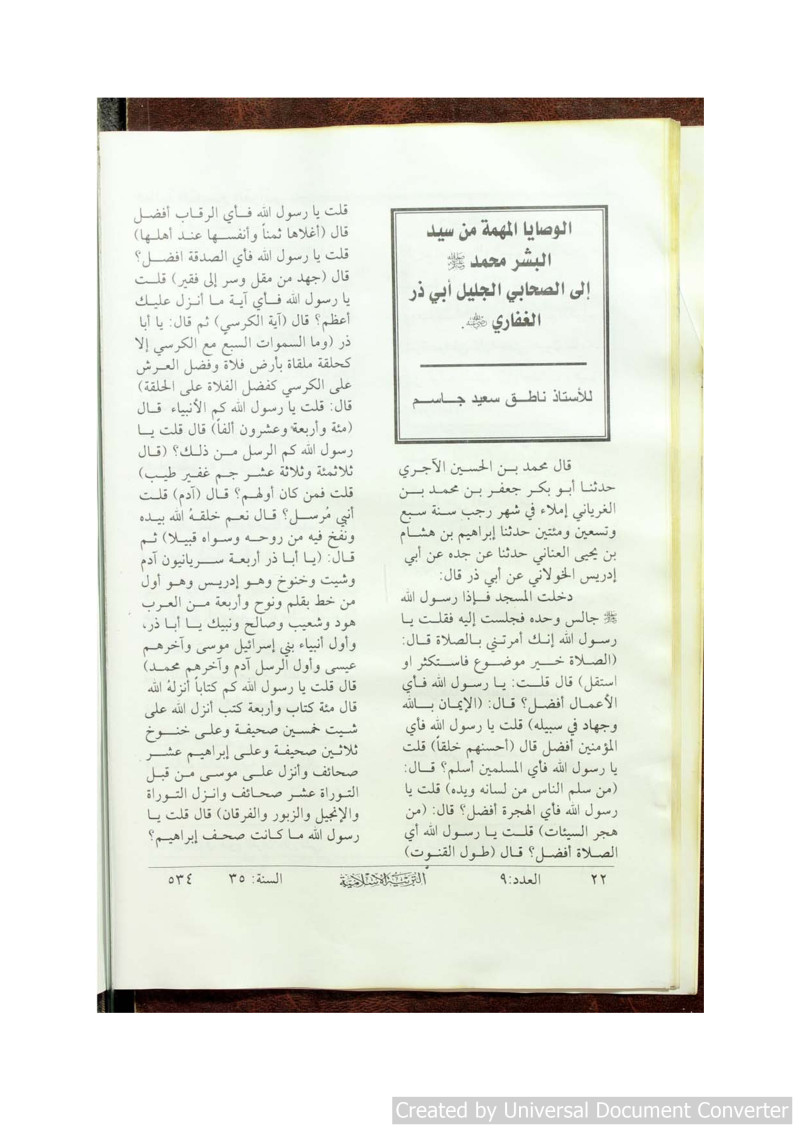 الوصايا المهمة من سيد
البشر محمد ﷺ
إلى الصحابي الجليل أبي ذر
الغفاري رضي الله عنه.
للأستاذ ناطق سعيد جاسم
قال محمد بن الحسين الآجري
حدثنا أبو بكر جعفر بن محمد بن
الغرياني إملاء في شهر رجب سنة سبع
وتسعين ومئتين حدثنا إبراهيم بن هشام
بن يحيى العناني حدثنا عن جده عن أبي
إدريس الخولاني عن أبي ذر قال:
دخلت المسجد فإذا رسول الله
ﷺ جالس وحده فجلست إليه فقلت يا
رسول الله إنك أمرتني بالصلاة قال:
(الصلاة خير موضوع فاستكثر او
استقل) قال قلت: يا رسول الله فأي
الأعمال أفضل؟ قال: (الإيمان بالله
وجهاد في سبيله) قلت يا رسول الله فأي
المؤمنين أفضل قال (أحسنهم خلقاً) قلت
يا رسول الله فأي المسلمين أسلم؟ قال:
(من سلم الناس من لسانه ويده) قلت يا
رسول الله فأي الهجرة أفضل؟ قال: (من
هجر السيئات) قلت يا رسول الله أي
الصلاة أفضل؟ قال (طول القنوت)
قلت يا رسول الله فأي الرقاب أفضل
قال (أغلاها ثمناً وأنفسها عند أهلها)
قلت يا رسول الله فأي الصدقة افضل؟
قال (جهد من مقل وسر إلى فقير) قلت
يا رسول الله فأي آية ما أنزل عليك
أعظم؟ قال (آية الكرسي) ثم قال: يا أبا
ذر (وما السموات السبع مع الكرسي إلا
كحلقة ملقاة بأرض فلاة وفضل العرش
على الكرسي كفضل الفلاة على الحلقة)
قال: قلت يا رسول الله كم الأنبياء قال
(مئة وأربعة وعشرون ألفاً) قال قلت يا
رسول الله كم الرسل من ذلك؟ (قال
ثلاثمئة وثلاثة عشر جم غفير طيب)
قلت فمن كان أولهم؟ قال (آدم) قلت
أنبي مُرسل؟ قال نعم خلقهُ الله بيده
ونفخ فيه من روحه وسواه قبيلا) ثم
قال: (يا أبا ذر أربعة سريانيون آدم
وشيت وخنوخ وهو إدريس وهو أول
من خط بقلم ونوح وأربعة من العرب
هود وشعيب وصالح ونبيك يا أبا ذر،
وأول أنبياء بني إسرائيل موسى وآخرهم
عيسى وأول الرسل آدم وآخرهم محمد)
قال قلت يا رسول الله كم كتاباً أنزلهُ الله
قال مئة كتاب وأربعة كتب أنزل الله على
شيت خمسين صحيفة وعلى خنوخ
ثلاثين صحيفة وعلى إبراهيم عشر
صحائف وأنزل على موسى من قبل
التوراة عشر صحائف وانزل التوراة
والإنجيل والزبور والفرقان) قال قلت يا
رسول الله ما كانت صحف إبراهيم؟
٢٢ العدد: ٩ التربية الإسلامية السنة: ٣٥ ٥٣٤
Created by Universal Document Converter